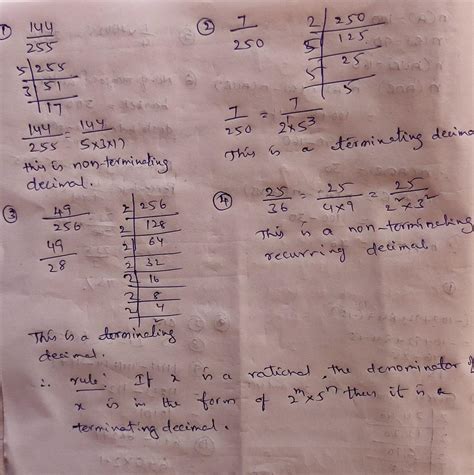 ① 144
255
5 | 255
3 | 51
17
144/255 = 144/5×3×17
this is non-terminating
decimal.
② 7
250
2 | 250
5 | 125
5 | 25
5
7/250 = 7/2¹×5³
This is a terminating decimal
③ 49
256
49
28
2 | 256
2 | 128
2 | 64
2 | 32
2 | 16
2 | 8
2 | 4
2
This is a terminating
decimal.
④ 25/36 = 25/4×9 = 25/2²×3²
This is a non-terminating
recurring decimal.
∴ rule: If x is a rational, the denominator of
x is in the form of 2ᵐ×5ⁿ then it is a
terminating decimal.